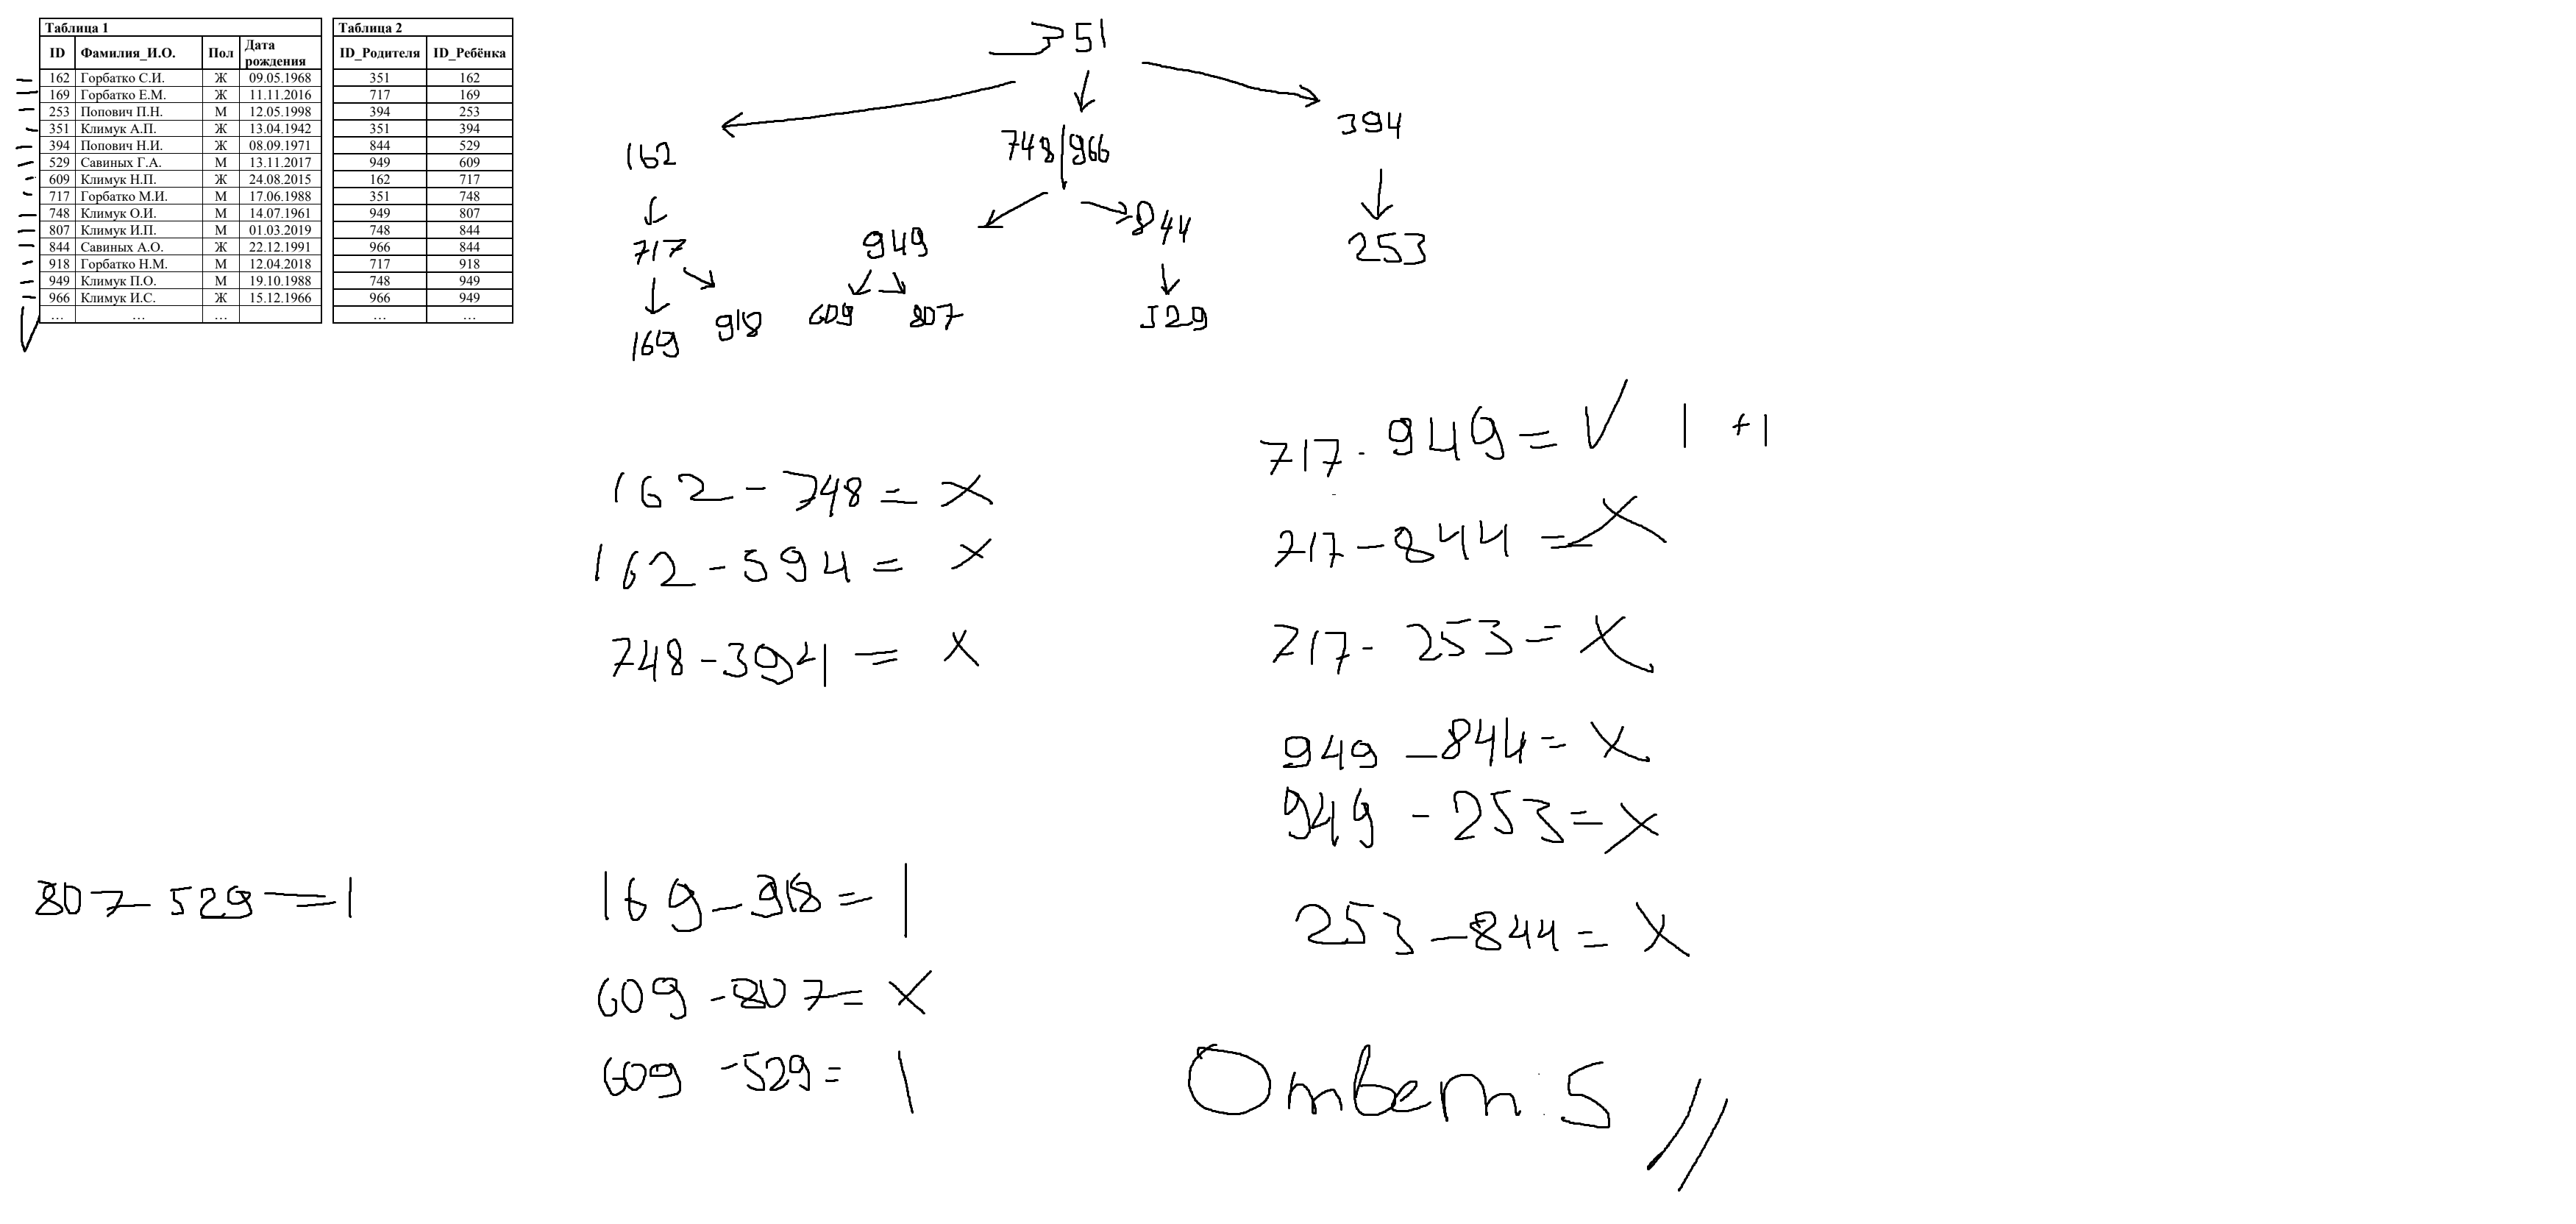 Таблица 1
ID Фамилия_И.О. Пол Дата рождения
162 Горбатко С.И. Ж 09.05.1968
169 Горбатко Е.М. Ж 11.11.2016
253 Попович П.Н. М 12.05.1998
351 Климук А.П. Ж 13.04.1942
394 Попович Н.И. Ж 08.09.1971
529 Савиных Г.А. М 13.11.2017
609 Климук Н.П. Ж 24.08.2015
717 Горбатко М.И. М 17.06.1988
748 Климук О.И. М 14.07.1961
807 Климук И.П. М 01.03.2019
844 Савиных А.О. Ж 22.12.1991
918 Горбатко Н.М. М 12.04.2018
949 Климук П.О. М 19.10.1988
966 Климук И.С. Ж 15.12.1966
... ... ...
Таблица 2
ID_Родителя ID_Ребёнка
351 162
717 169
394 253
351 394
844 529
949 609
162 717
351 748
949 807
748 844
966 844
717 918
748 949
966 949
... ...
351
162 748|966 394
717 949 844 253
169 918 609 807 529
162 - 748 = X
162 - 594 = X
748 - 394 = X
717 - 949 = V 1 +1
717 - 844 = X
717 - 253 = X
949 - 844 = X
949 - 253 = X
253 - 844 = X
807 - 529 = 1
169 - 918 = 1
609 - 807 = X
609 - 529 = 1
Ответ: 5 //